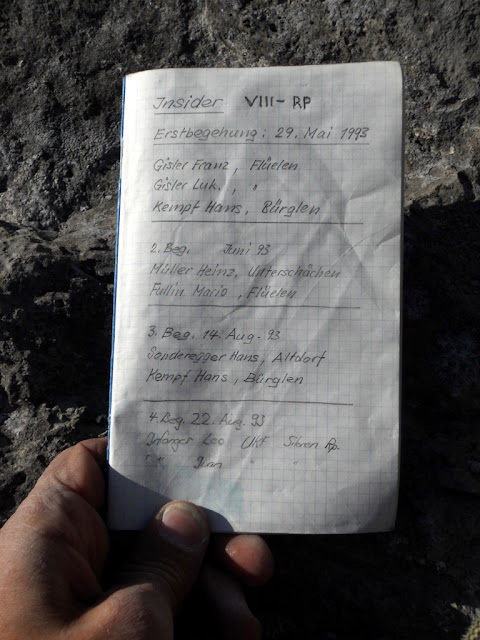 Insider VIII- RP
Erstbegehung: 29. Mai 1993
Gisler Franz, Flüelen
Gisler Luk., "
Kempf Hans, Bürglen
2. Beg. Juni 93
Müller Heinz, Unterschächen
Fullin Mario, Flüelen
3. Beg. 14. Aug. 93
Sonderegger Hans, Altdorf
Kempf Hans, Bürglen
4. Beg. 22. Aug. 93
Infanger Leo
" "